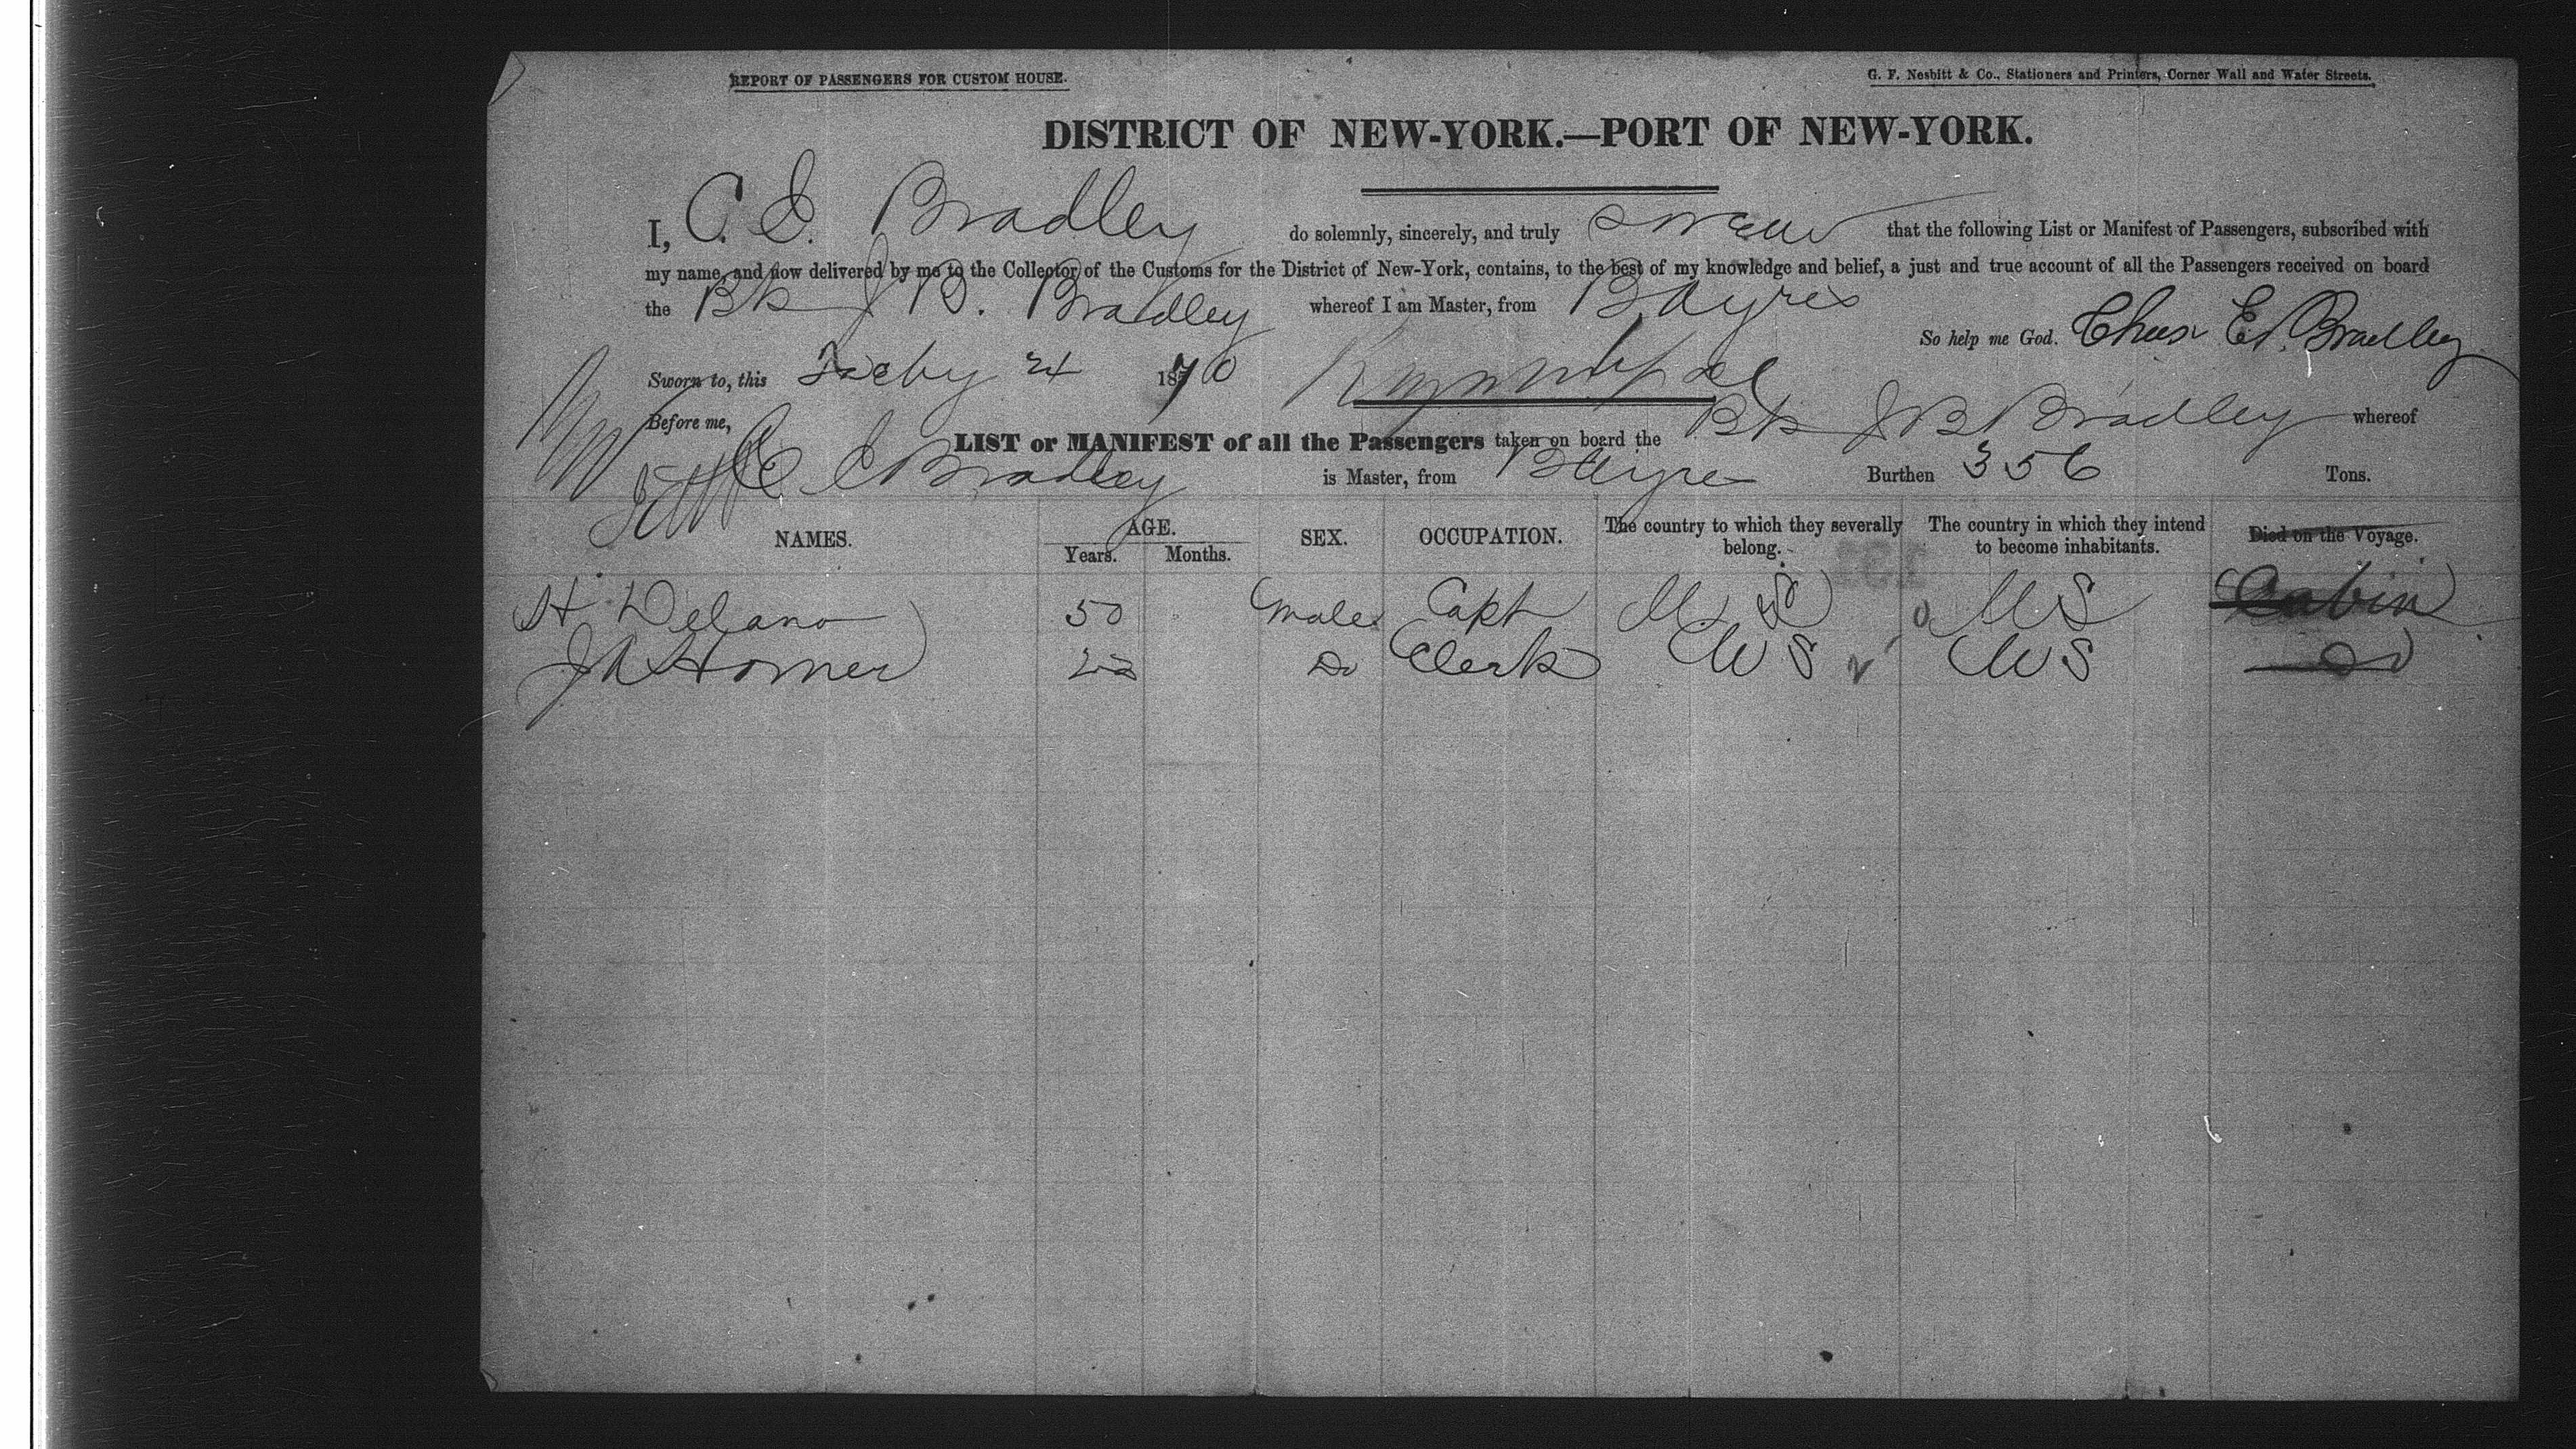 REPORT OF PASSENGERS FOR CUSTOM HOUSE.
G. F. Nesbitt & Co., Stationers and Printers, Corner Wall and Water Streets.
DISTRICT OF NEW-YORK.—PORT OF NEW-YORK.
I, C. E. Bradley do solemnly, sincerely, and truly swear that the following List or Manifest of Passengers, subscribed with
my name, and now delivered by me to the Collector of the Customs for the District of New-York, contains, to the best of my knowledge and belief, a just and true account of all the Passengers received on board
the Bk J B. Bradley whereof I am Master, from B Ayres
So help me God. Chas E. Bradley
Sworn to, this 1870
Before me,
LIST or MANIFEST of all the Passengers taken on board the Bk J B Bradley whereof
C E Bradley is Master, from B Ayres Burthen 356 Tons.
NAMES. AGE. Years. Months. SEX. OCCUPATION. The country to which they severally belong. The country in which they intend to become inhabitants. Died on the Voyage.
H. Delano 50 Male Capt U. S U S Cabin
J A Homer 22 Do Clerk U S U S Do